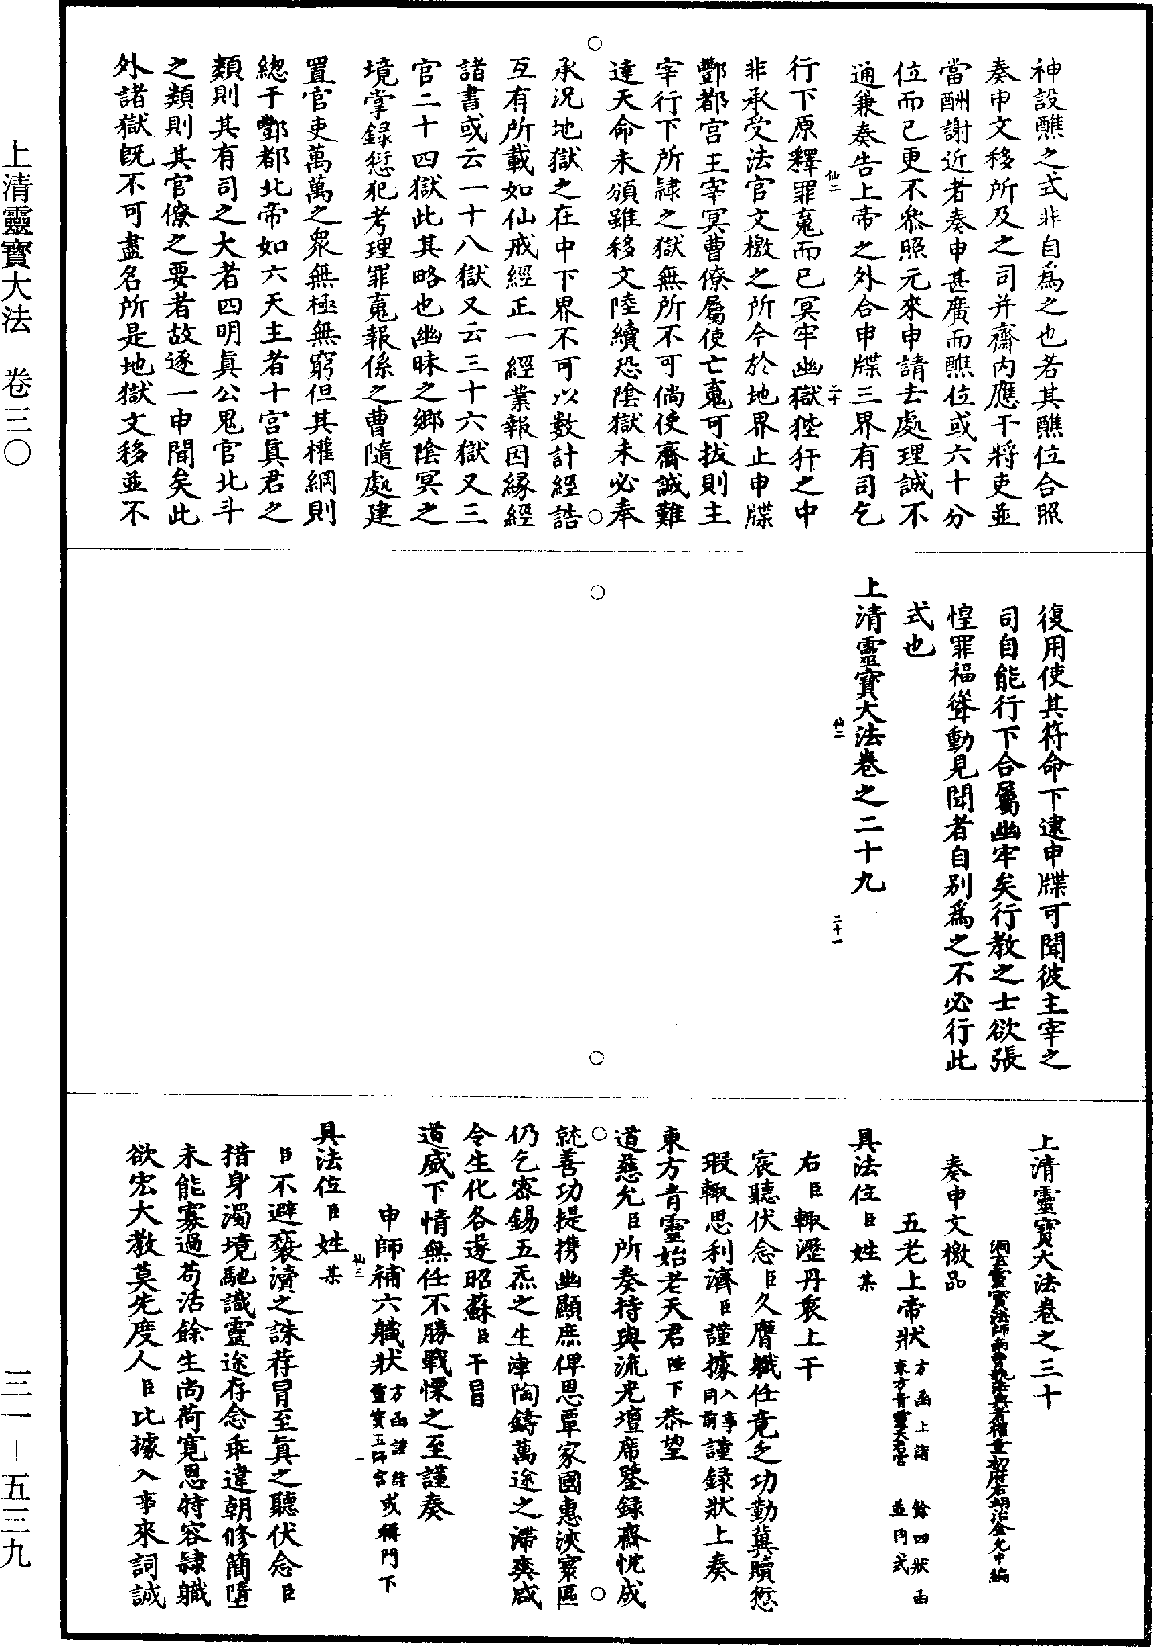 上清靈寶大法　卷三〇
三一－五三九
神設醮之式非自爲之也若其醮位合照
奏申文移所及之司并齋內應干將吏並
當酬謝近者奏申甚廣而醮位或六十分
位而已更不參照元來申請去處理誠不
通兼奏告上帝之外合申牒三界有司乞
仙二　二十
行下原釋罪䰟而已冥牢幽獄狴犴之中
非承受法官文檄之所今於地界止申牒
酆都宫王宰冥曹僚屬使亡䰟可拔則主
宰行下所隸之獄無所不可倘使齋誠難
達天命未頒雖移文陸續恐陰獄未必奉
承况地獄之在中下界不可以數計經誥
互有所載如仙戒經正一經業報因緣經
諸書或云一十八獄又云三十六獄又三
官二十四獄此其略也幽昧之鄉陰冥之
境掌録愆犯考理罪䰟報係之曹隨處建
置官吏萬萬之衆無極無窮但其權綱則
總于酆都北帝如六天主者十宫真君之
類則其有司之大者四明眞公鬼官北斗
之類則其官僚之要者故逐一申聞矣此
外諸獄既不可盡名所是地獄文移並不
復用使其符命下逮申牒可聞彼主宰之
司自能行下合屬幽牢矣行教之士欲張
惶罪福聳動見聞者自别爲之不必行此
式也
仙二　二十一
上清靈寶大法卷之二十九
上清靈寶大法卷之三十
奏申文檄品
五老上帝狀方函上請　餘四狀函
東方青靈天君宫　並同式
具法位臣姓某
右臣輙瀝丹衷上干
宸聽伏念臣久膺職任竟乏功勤冀贖愆
瑕輙思利濟臣謹據入事同前謹録狀上奏
東方青靈始老天君陛下恭望
道慈允臣所奏特與流光壇席鑒録齋悰成
就善功提携幽顯庶俾恩覃家國惠浹寰區
仍乞密錫五炁之生津陶鑄萬途之滯爽咸
令生化各遂昭蘇臣干冒
道威下情無任不勝戰慄之至謹奏
申師補六職狀方函謹請
靈寶五師宫或稱門下
仙三　一
具法位臣姓某
臣不避褻瀆之誅荐冒至眞之聽伏念臣
猎身濁境馳識靈途存念乖違朝修簡墮
未能寡過苟活餘生尚荷寬恩特容隸職
欲宏大教莫先度人臣比據入事來詞誠